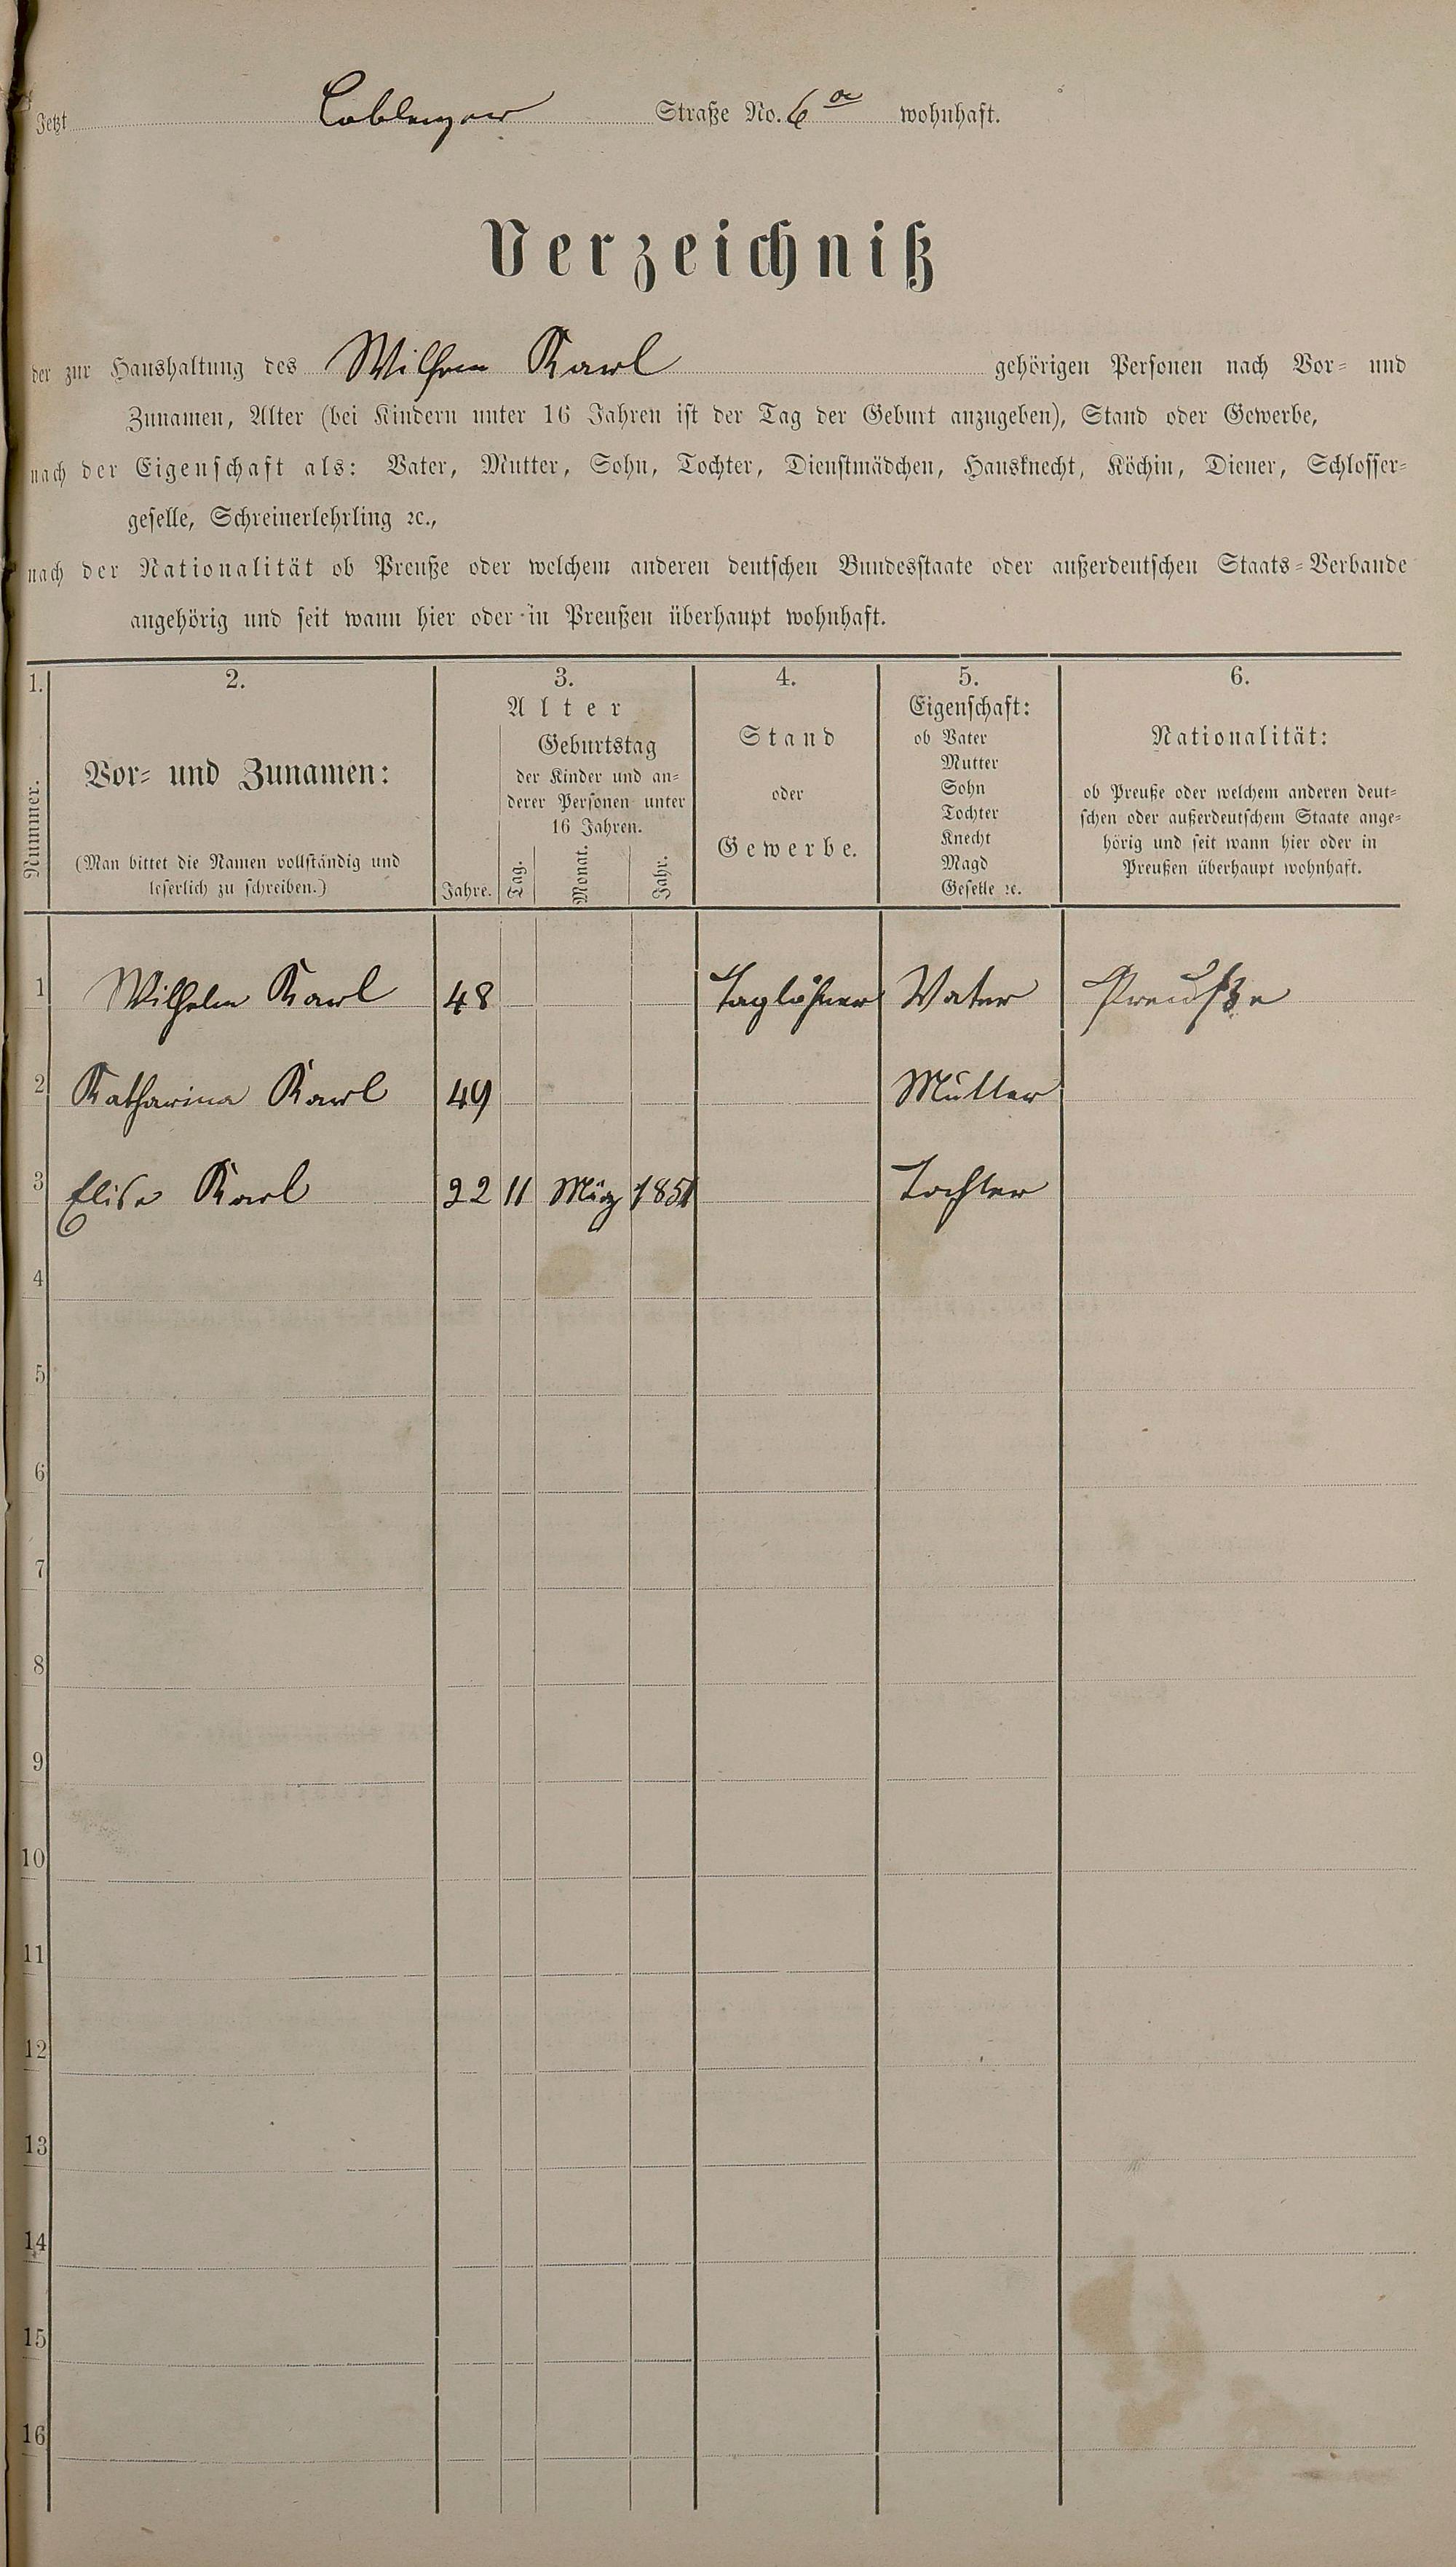 Jetzt Coblenzer Straße No. 6a wohnhaft.
Verzeichniß
der zur Haushaltung des Wilhem Karl gehörigen Personen nach Vor- und
Zunamen, Alter (bei Kindern unter 16 Jahren ist der Tag der Geburt anzugeben), Stand oder Gewerbe,
nach der Eigenschaft als: Vater, Mutter, Sohn, Tochter, Dienstmädchen, Hausknecht, Köchin, Diener, Schlosser-
geselle, Schreinerlehrling ꝛc.,
nach der Nationalität ob Preuße oder welchem anderen deutschen Bundesstaate oder außerdeutschen Staats-Verbande
angehörig und seit wann hier oder in Preußen überhaupt wohnhaft.
1.
Nummer.
2.
Vor- und Zunamen:
(Man bittet die Namen vollständig und
leserlich zu schreiben.)
3.
Alter
Jahre.
Geburtstag
der Kinder und an-
derer Personen unter
16 Jahren.
Tag. Monat. Jahr.
4.
Stand
oder
Gewerbe.
5.
Eigenschaft:
ob Vater
Mutter
Sohn
Tochter
Knecht
Magd
Geselle ꝛc.
6.
Nationalität:
ob Preuße oder welchem anderen deut-
schen oder außerdeutschem Staate ange-
hörig und seit wann hier oder in
Preußen überhaupt wohnhaft.
1 Wilhelm Karl 48 Taglöhner Vater Preuße
2 Katharina Karl 49 Mutter
3 Elise Karl 22 11 März 1851 Tochter
4
5
6
7
8
9
10
11
12
13
14
15
16